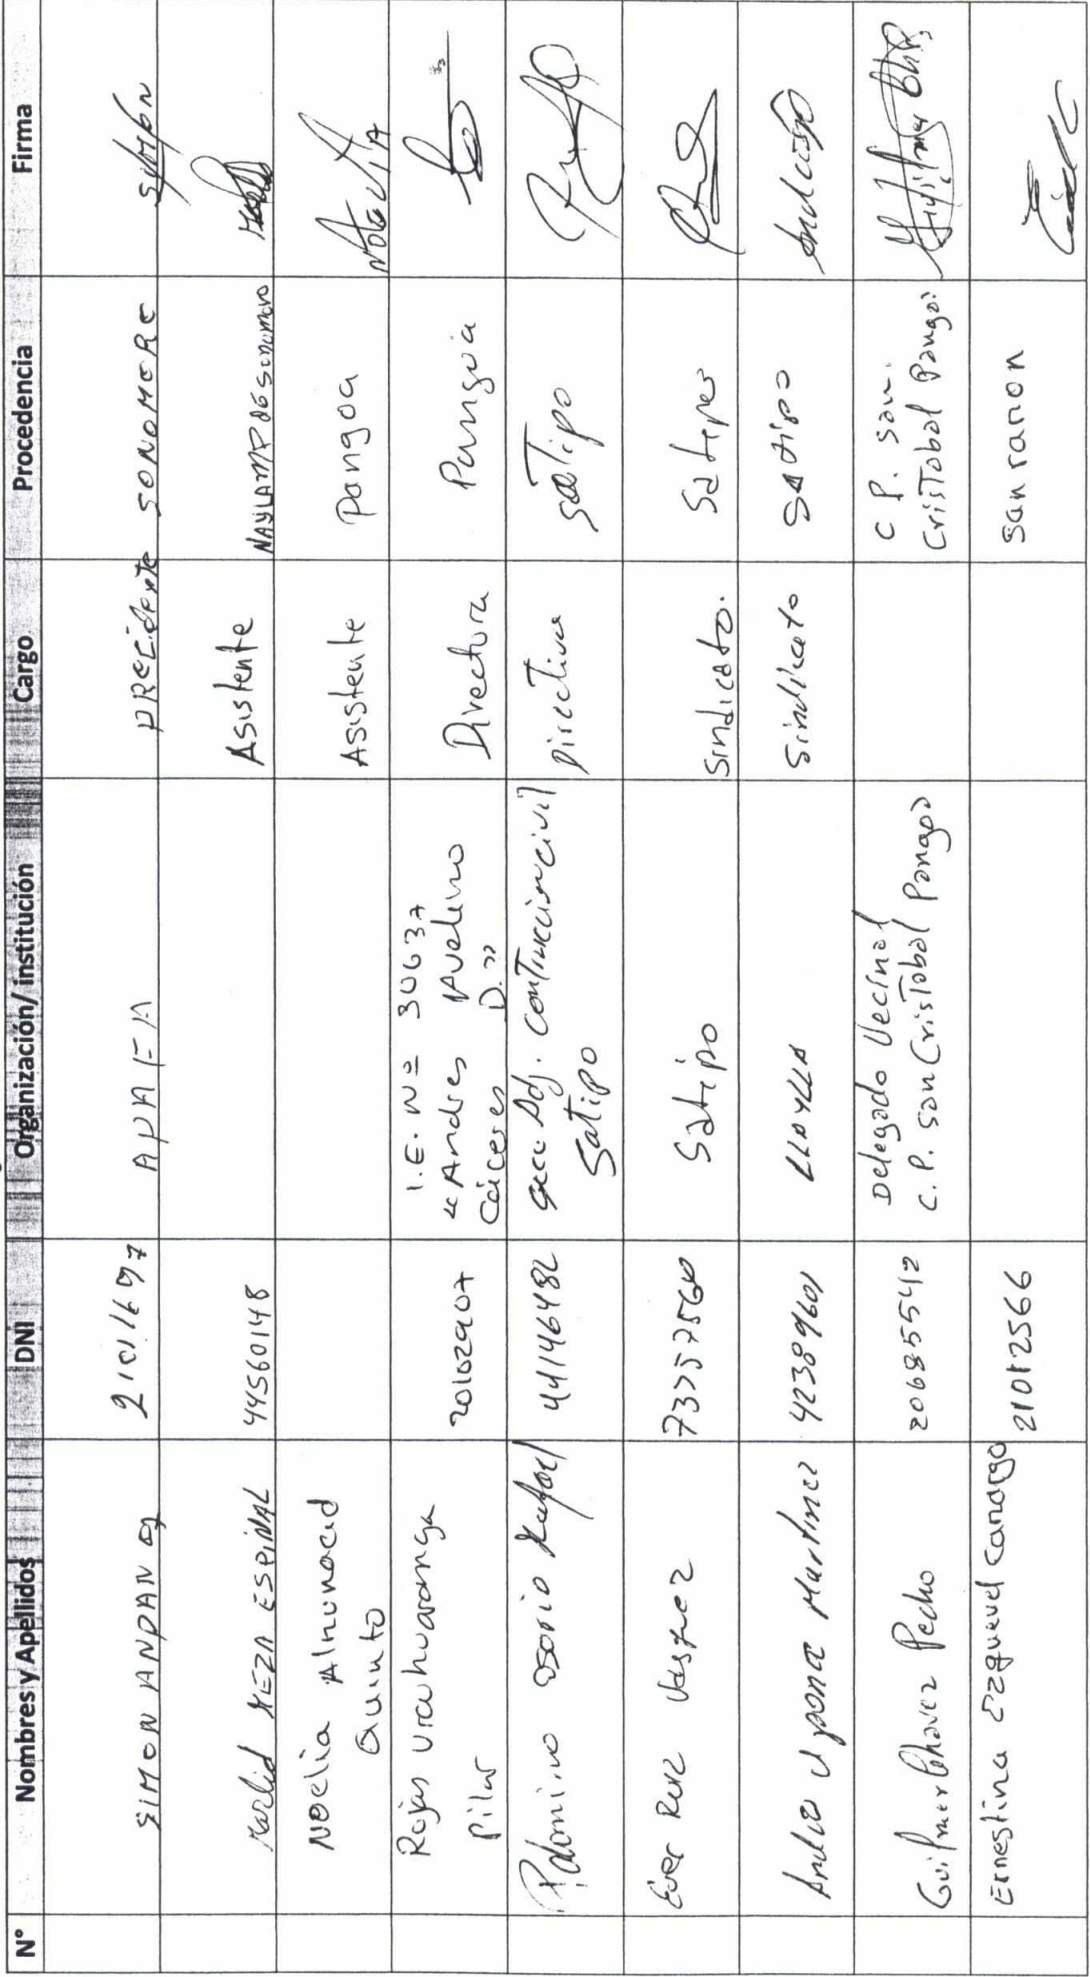 N° Nombres y Apellidos DNI Organización/ institución Cargo Procedencia Firma
SIMON ANDAN 2101697 APAFA PRECidente SONOMORE SIMON
Marlid MEZA ESPINAL 44560148 Asistente NAYLAMP de SONOMORO
Noelia Almonacid
Quinto Asistente Pangoa Noelia
Rojas Urcuhuaranga
Pilar 20102907 I.E. Nº 30637
"Andres Avelino
Cáceres D." Directora Pangoa
Palomino Osorio Rafael 44146482 Secc. Adj. Contruccion civil
Satipo Directivo SaTipo
Ever Ruiz Vasquez 73757560 Satipo Sindicato. Satipo
Martinez 42389601 LLAYLLA Sindicato Satipo
Guilmer Chavez Pecho 20685542 Delegado Vecinal
C. P. San CrisTobal Pangoa C P. San.
CrisTobal Pangoa
Ernestina Ezquevel Canargo 21012566 San ramon